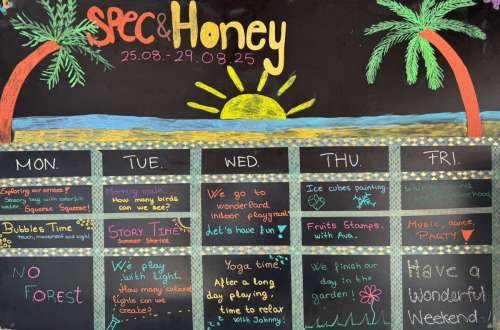 SPEC & Honey
25.08.-29.08.25
MON. TUE. WED. THU. FRI.
Exploring our senses!
Sensory bag with colorful
water Squeeze Squeeze!
Morning walk
How many birds
can we see?
We go to
wonderland
indoor playground
Let's have fun
Ice cubes painting.
Bubbles Time
touch, movement and sight
STORY TIME
Summer Stories
Fruits Stamps.
with Ava.
Music, dance,
PARTY
NO
FOREST
We play
with light.
How many colours
lights can we
create?
Yoga time!
After a long
day playing,
time to relax
with Johnny!
We finish our
day in the
garden!
Have a
Wonderful
Weekend